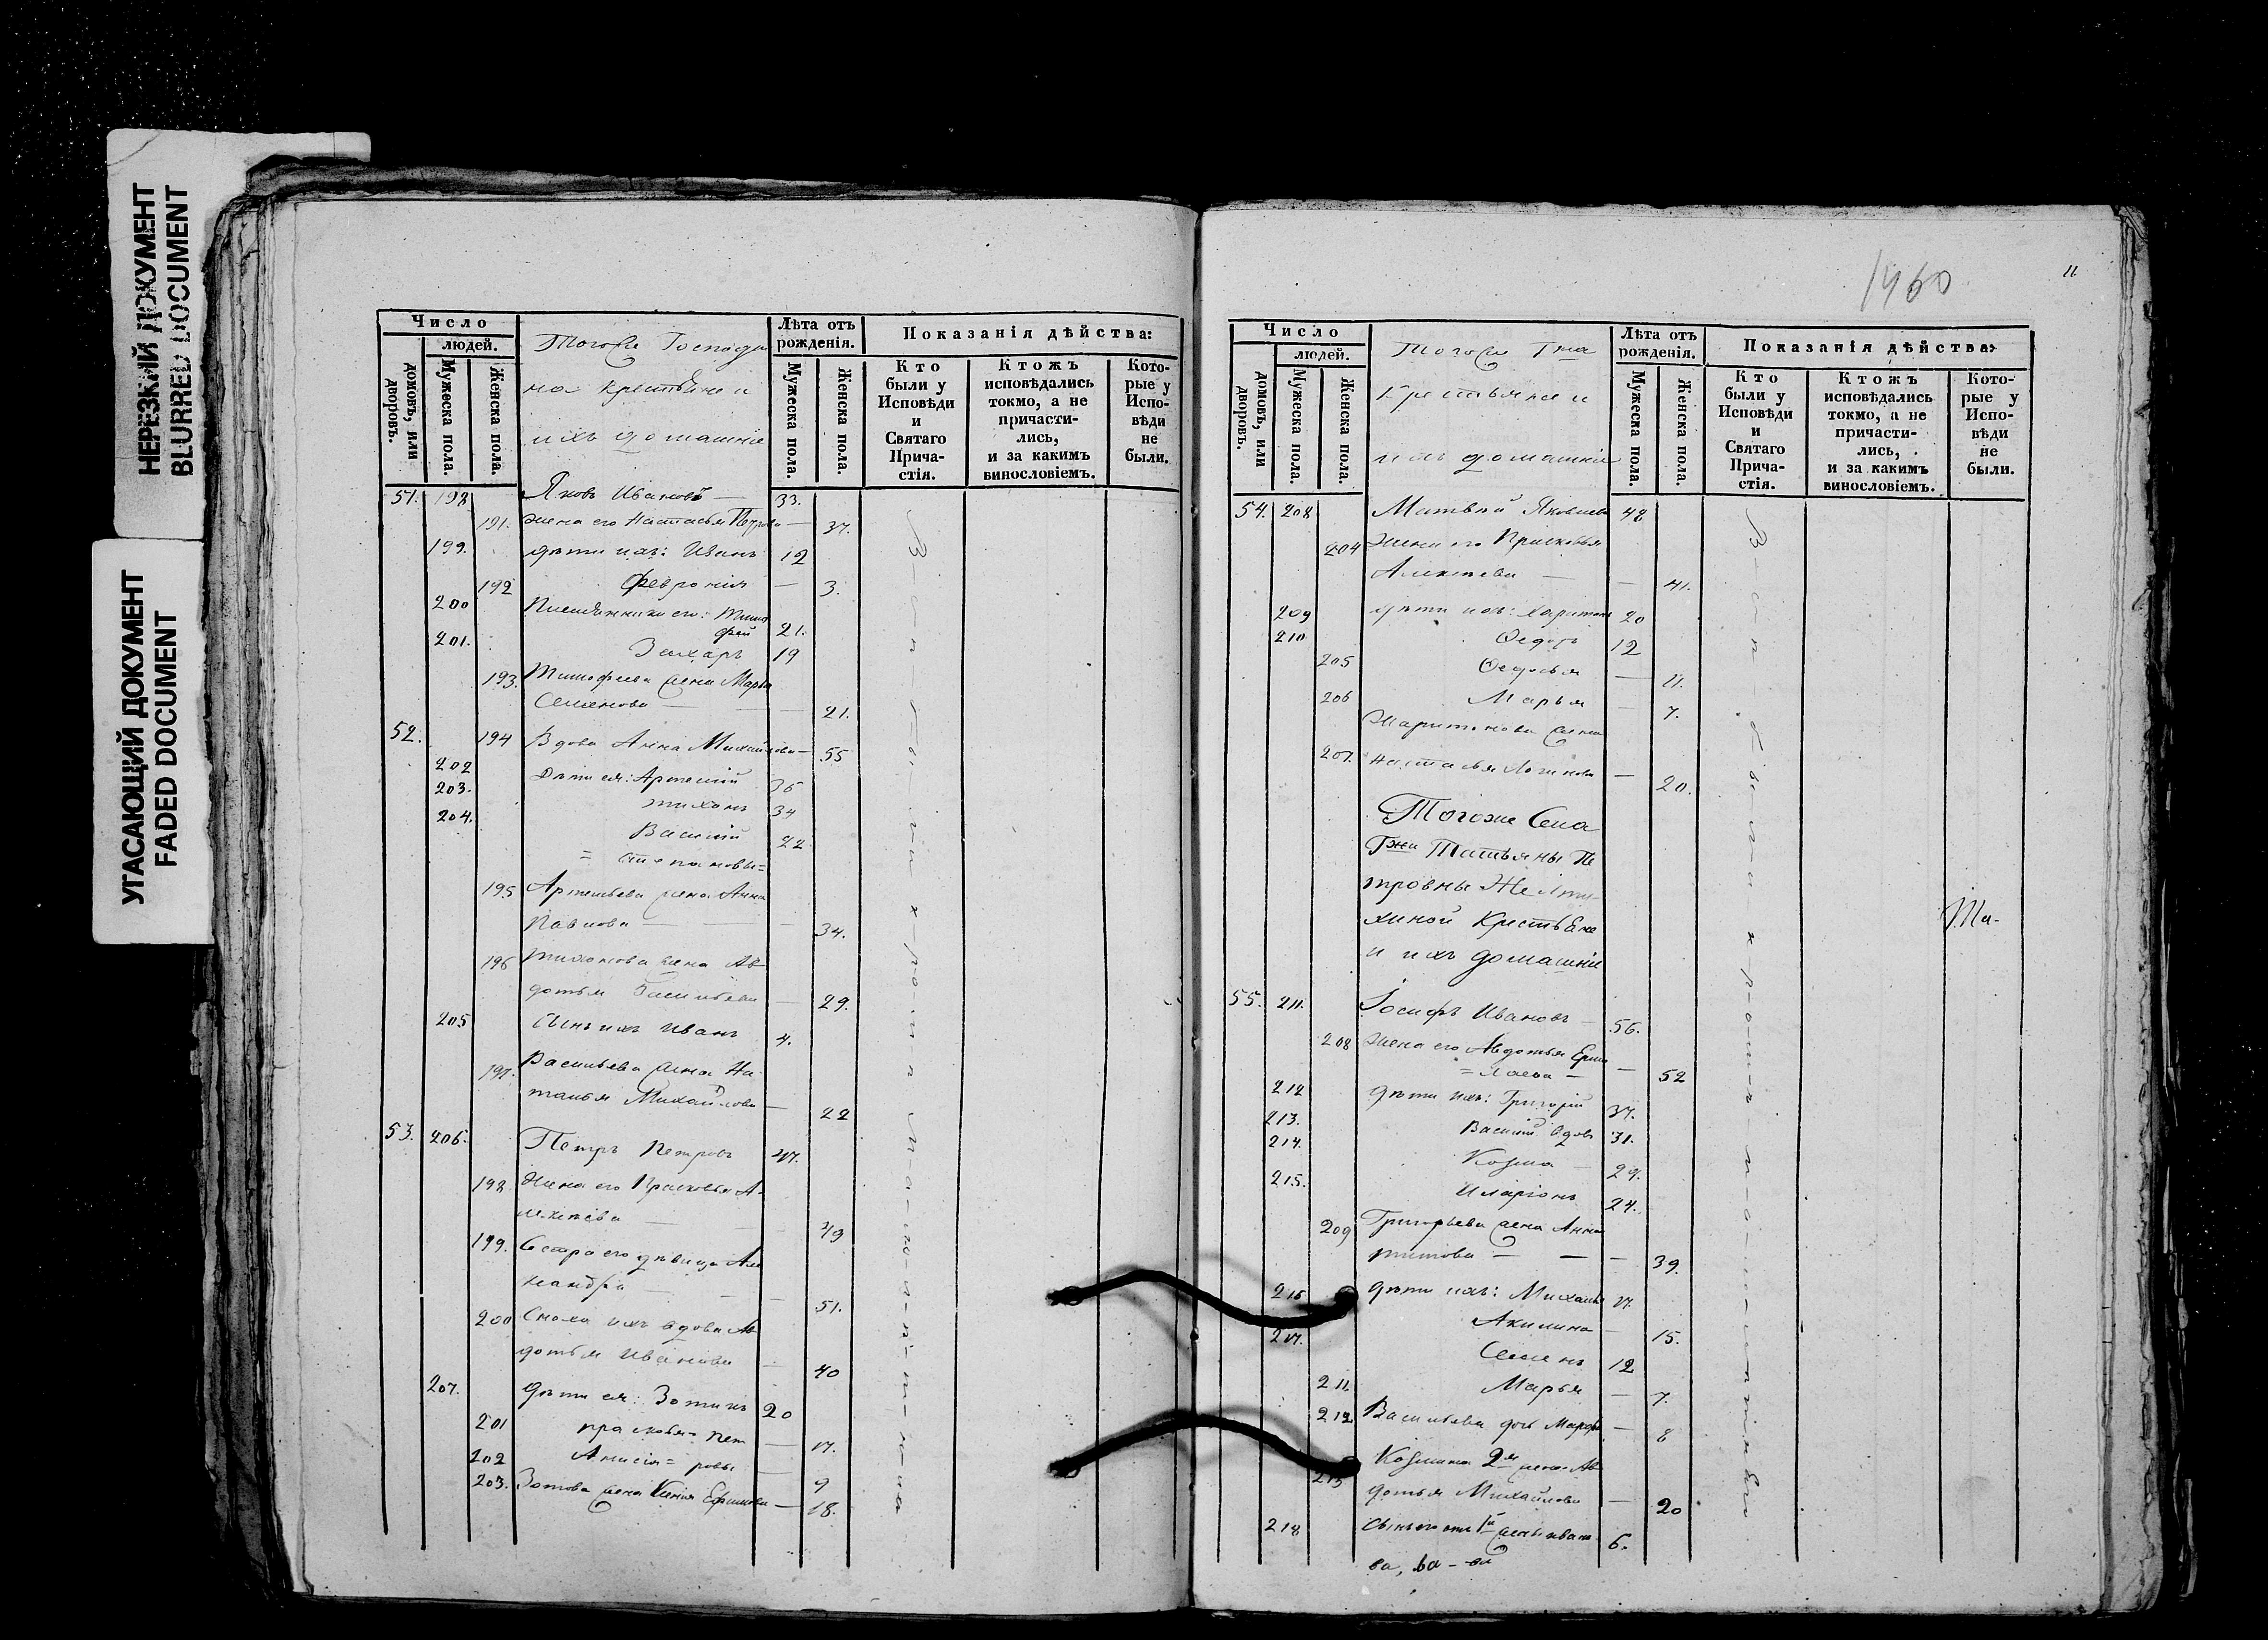 НЕРЕЗКИЙ ДОКУМЕНТ
BLURRED DOCUMENT
УГАСАЮЩИЙ ДОКУМЕНТ
FADED DOCUMENT
Число
людей.
домовъ, или дворовъ.
Мужеска пола.
Женска пола.
Тогоже Господи
на крестьяне и
ихъ домашніе
Лѣта отъ рожденія.
Мужеска пола.
Женска пола.
Показанія дѣйства:
Кто были у Исповѣди и Святаго Прича-стія.
Ктожъ исповѣдались токмо, а не причасти-лись, и за какимъ винословіемъ.
Кото-рые у Испо-вѣди не были.
51. 198 Яковъ Ивановъ — 33.
191. жена его Настасья Петрова — 37.
199. дѣти ихъ: Иванъ 12
192 Февронія — 3.
200 Племянники его: Тимо
фей 21.
201. Захаръ 19
193. Тимофеева жена Марья
Семенова — 21.
52. 194 Вдова Анна Михайлова — 55
202 Дѣти ея: Артемій 36
203. Тихонъ 34
204. Василій 22
= Степановы =
195 Артемьева жена Анна
Павлова — 34.
196 Тихонова жена Ав
дотья Васильева — 29.
205 Сынъ ихъ Иванъ 4.
197. Васильева жена На
талья Михайлова — 22
53. 206. Петръ Петровъ 47.
198 Жена его Прасковья А-
лексѣева — 43
199. Сестра его дѣвица
51.
200 Сноха ихъ вдова Ав
дотья Иванова — 40
207. Дѣти ея: Зотикъ 20
201 Прасковья = Пет — 17.
202 Анисія = ровы — 9
203. Зотова жена Ксенія Ефимова — 18.
1460
11
Число
людей.
домовъ, или дворовъ.
Мужеска пола.
Женска пола.
Тогоже Гна
Крестьяне и
ихъ домашніе
Лѣта отъ рожденія.
Мужеска пола.
Женска пола.
Показанія дѣйства:
Кто были у Исповѣди и Святаго Прича-стія.
Ктожъ исповѣдались токмо, а не причасти-лись, и за какимъ винословіемъ.
Кото-рые у Испо-вѣди не были.
54. 208 Матвѣй Яковлевъ 48
204 Жена его Прасковья
Алексѣева — 41.
209 дѣти ихъ: Харитонъ 20
210 Ѳедоръ 12
205 Ѳедосья — 11.
206 Марья — 7.
Харитонова жена
207. Настасья Логинова — 20.
Тогоже Села
Гжи Татьяны Пе
тровны
Крестьяне
и ихъ домашніе
55. 211. Іосифъ Ивановъ — 56.
208 Жена его Авдотья Ермо
= лаева — 52
212 Дѣти ихъ: Григорій 37.
213. Василій вдовъ 31.
214. Козма — 29.
215. Иларіонъ 24.
209 Григорьева жена Анна
Титова — 39.
216 Дѣти ихъ: Михаилъ 17.
Акилина — 15.
217. Семенъ 12
211 Марья — 7.
212 Васильева дочь Марфа — 8
213 Козмина 2я жена Ав
дотья Михайлова — 20
218 Сынъ его отъ 1й жены
6.
Та-